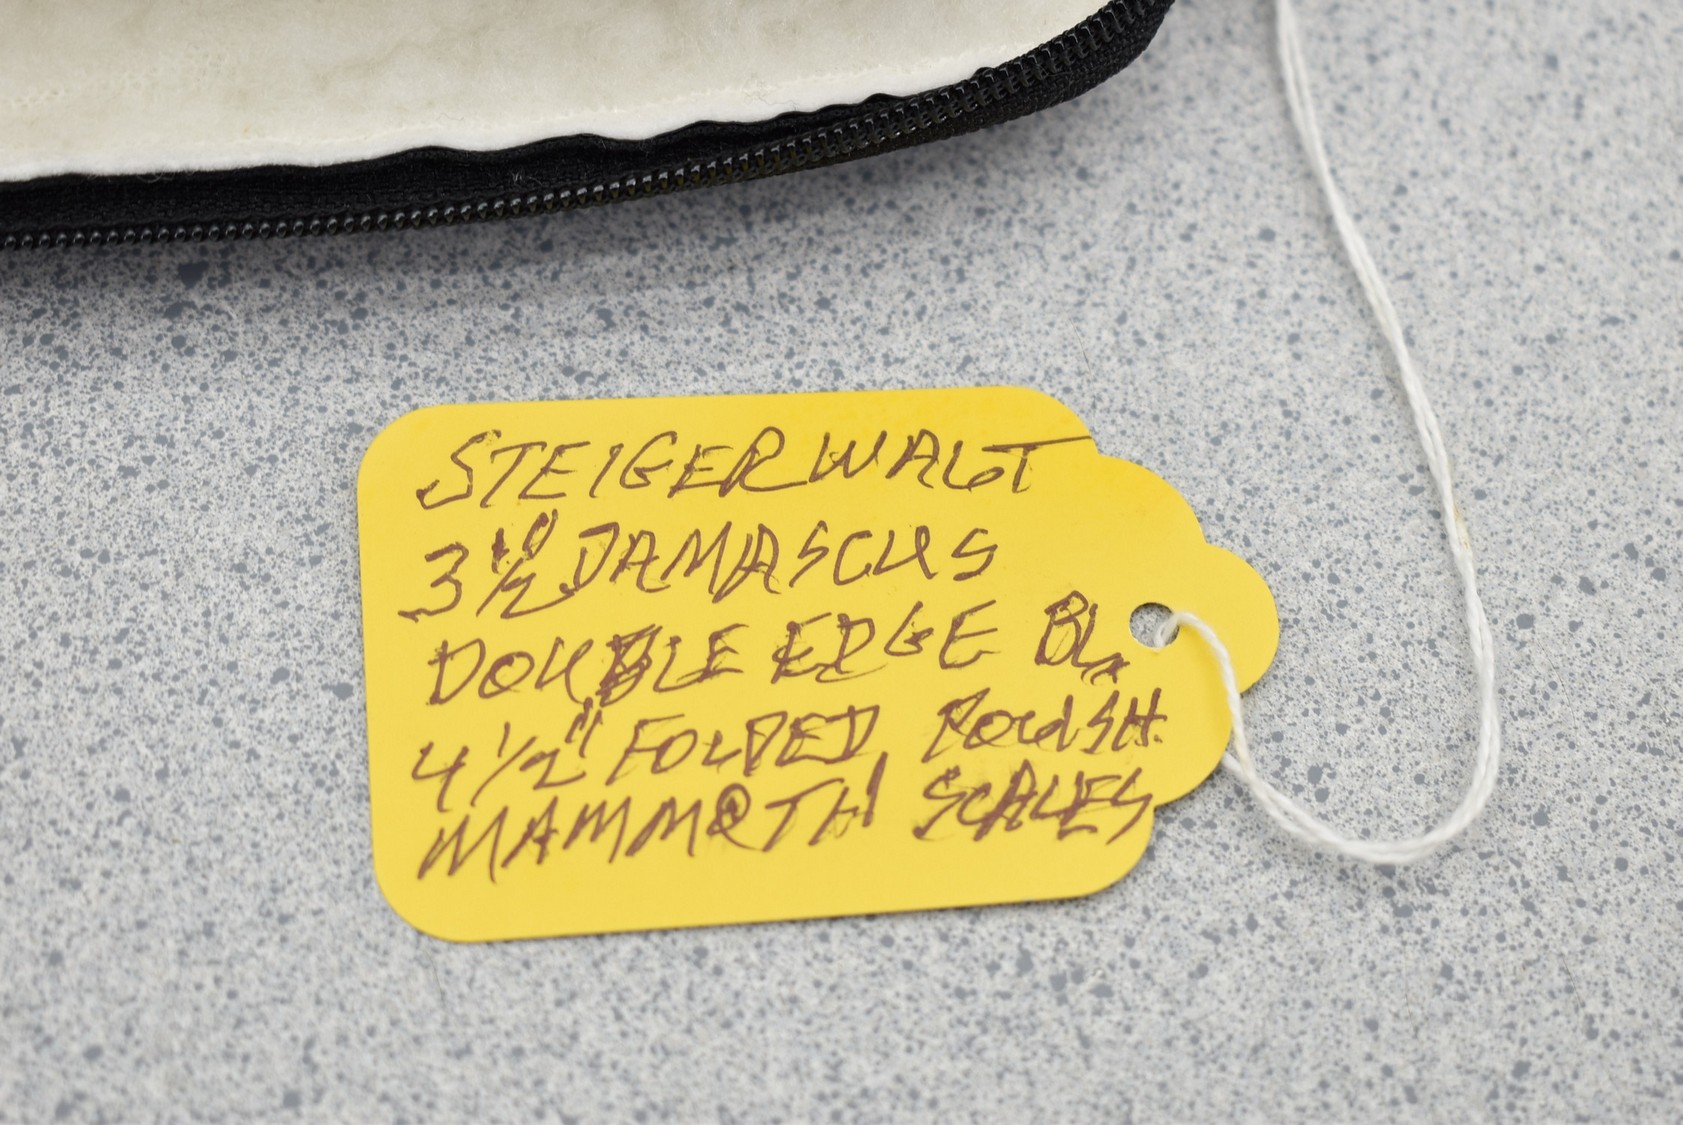 STEIGERWALT
3 1/2" DAMASCUS
DOUBLE EDGE BL.
4 1/2" FOLDED POLISH
MAMMOTH SCALES